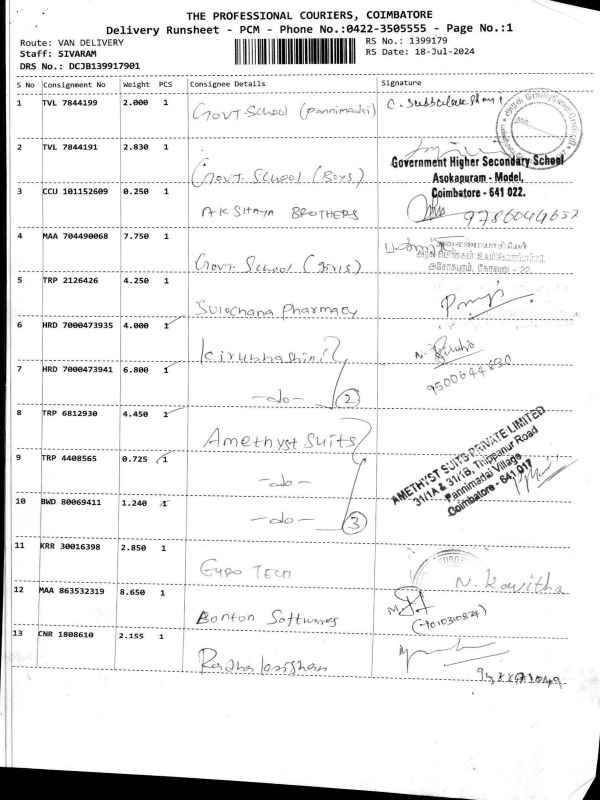 THE PROFESSIONAL COURIERS, COIMBATORE
Delivery Runsheet - PCM - Phone No.:0422-3505555 - Page No.:1
Route: VAN DELIVERY
RS No.: 1399179
Staff: SIVARAM
RS Date: 18-Jul-2024
DRS No.: DCJB139917901
S No Consignment No Weight PCS Consignee Details Signature
1 TVL 7844199 2.000 1 Govt. School (Pannimadai)
2 TVL 7844191 2.830 1 Govt. School (Boys)
Government Higher Secondary School
Asokapuram - Model,
Coimbatore - 641 022.
3 CCU 101152609 0.250 1 AKSHAYA BROTHERS
4 MAA 704490068 7.750 1 Govt. School (Girls)
5 TRP 2126426 4.250 1 Sulochana Pharmacy
6 HRD 7000473935 4.000 1 Kirubhashini
7 HRD 7000473941 6.800 1 -do- 2
9500644830
8 TRP 6812930 4.450 1 Amethyst Suits
AMETHYST SUITS PRIVATE LIMITED
31/1A & 31/1B, Thippanur Road
Pannimadai Village
Coimbatore - 641 017
9 TRP 4408565 0.725 1 -do-
10 BWD 80069411 1.240 1 -do- 3
11 KRR 30016398 2.850 1 Euro Tech N. Kavitha
12 MAA 863532319 8.650 1 Bonton Softwares
13 CNR 1808610 2.155 1